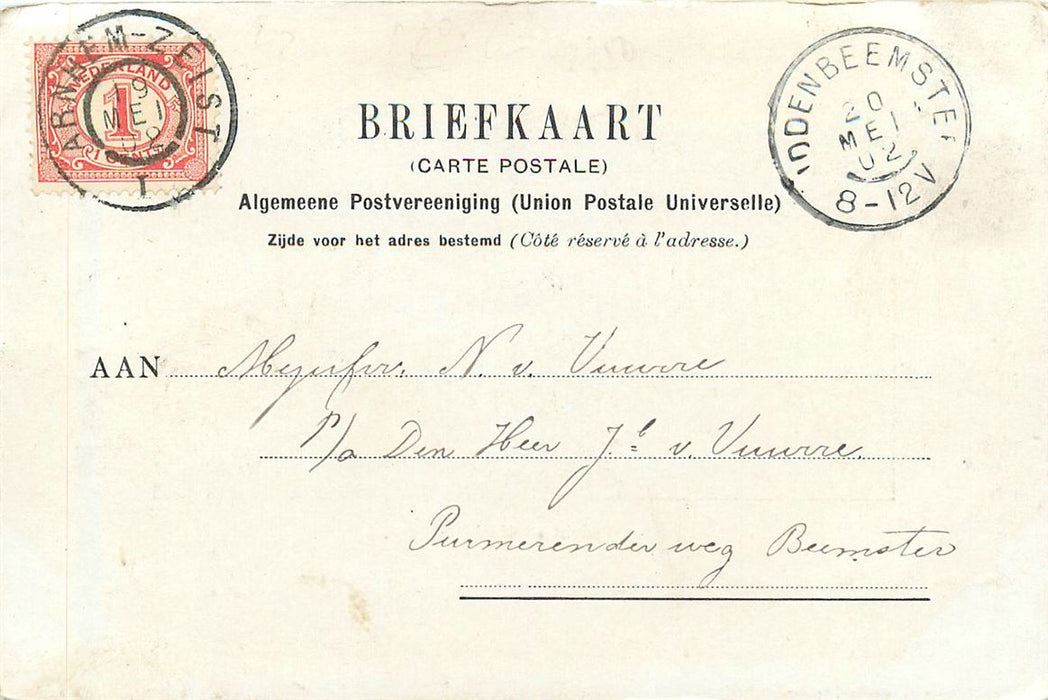 ARNHEM-ZEIST
19
MEI
02
I
NEDERLAND
1
1 CENT
IDDENBEEMSTER
20
MEI
02
8-12V
BRIEFKAART
(CARTE POSTALE)
Algemeene Postvereeniging (Union Postale Universelle)
Zijde voor het adres bestemd (Côté réservé à l'adresse.)
AAN Mejufvr. N. v. Vuurre
P/a Den Heer Jb. v. Vuurre.
Purmerenderweg Beemster